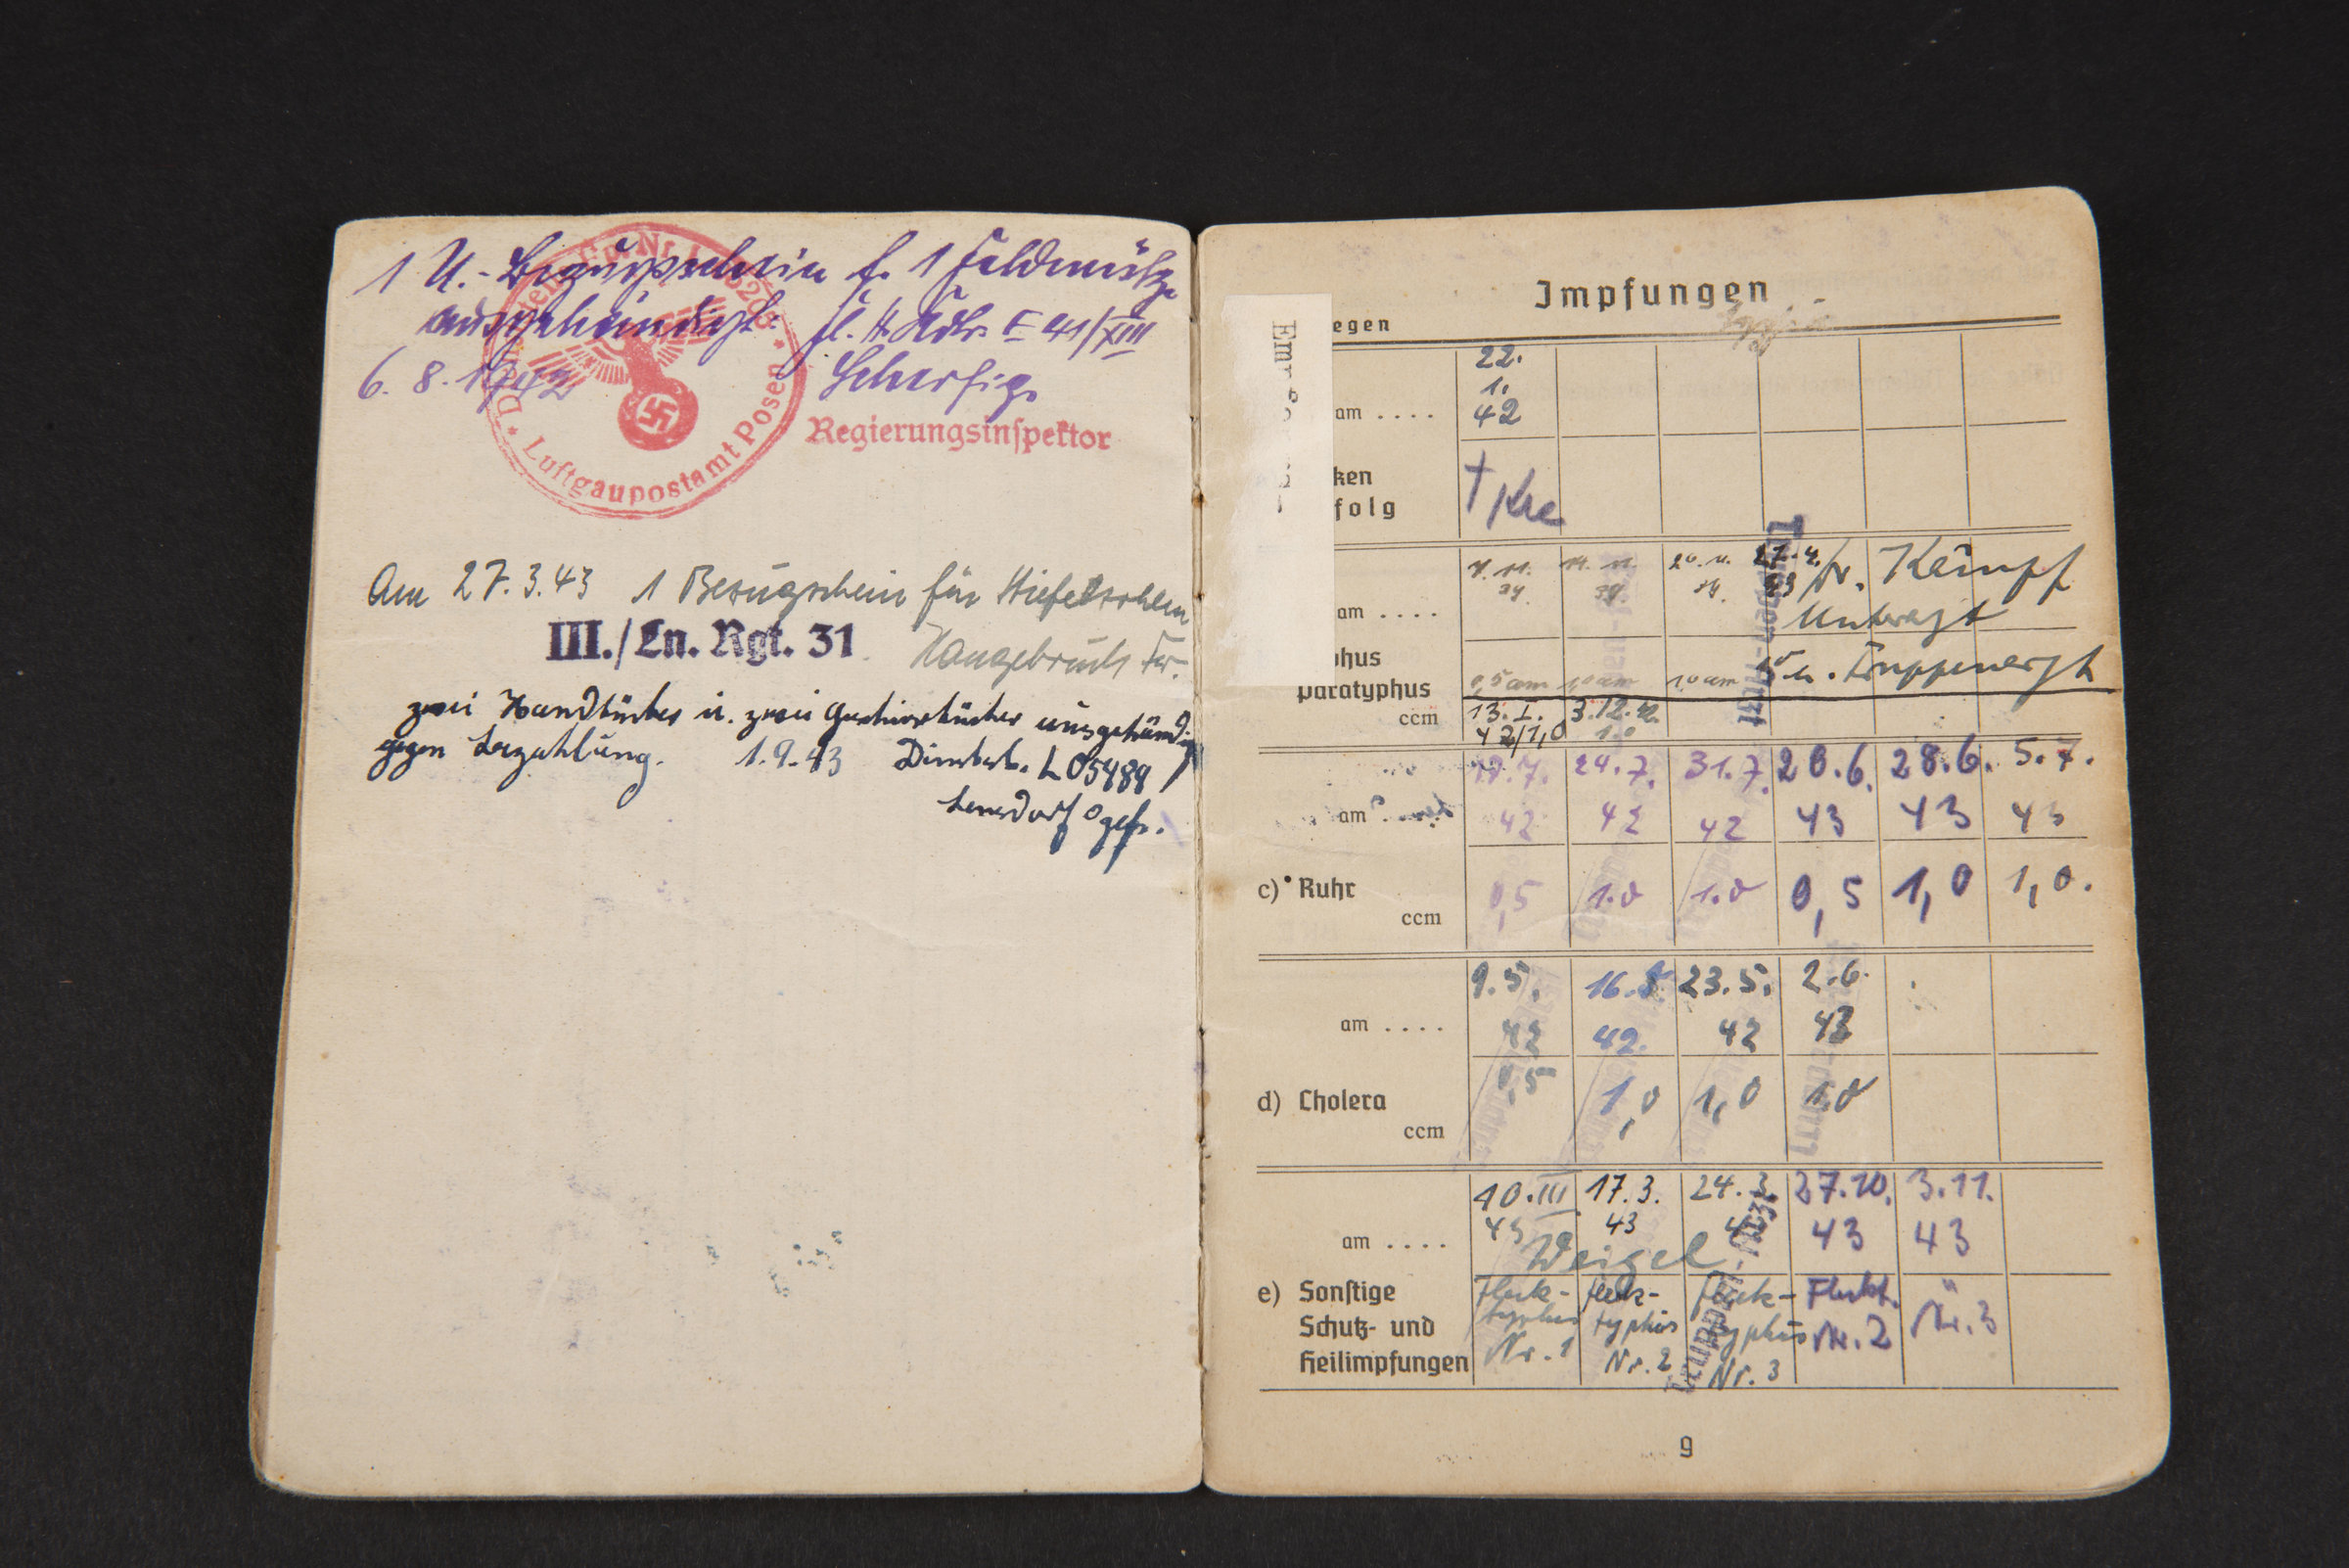 1 U.-Bezugschein f. 1 Feldmütze
ausgehändigt. Fl. H. Kdtr. E 41/XIII
6. 8. 1942
Regierungsinspektor
Luftgaupostamt Posen
Am 27.3.43 1 Bezugschein für Stiefelsohlen
III./Ln. Rgt. 31
zwei Handtücher u. zwei Geschirrtücher ausgehändigt
gegen Barzahlung. 1.9.43 Dienstst. L 05489
Ogefr.
Impfungen
egen
am ....
22.
1.
42
ken
folg
am ....
27.4.
43
Kämpf
Unterarzt
u. Truppenarzt
phus
Paratyphus
ccm
0,5 ccm
13.I. 3.12.42.
42/1,0 1.0
24.7. 31.7. 20.6. 28.6. 5.7.
am
42 42 42 43 43 43
c) Ruhr
ccm
0,5 1.0 1.0 0,5 1,0 1,0.
9.5. 16.5. 23.5. 2.6.
am ....
42 42. 42 43
d) Cholera
ccm
0,5 1,0 1,0 1.0
10.III. 17.3. 24.3. 27.10. 3.11.
am ....
43 43 43 43
Weigel
e) Sonstige
Schutz- und
Heilimpfungen
Fleck-
typhus
Nr. 1
Fleck-
typhus
Nr. 2
Fleck-
typhus
Nr. 3
Fleckf.
Nr. 2
"
Nr. 3
Truppen-Arzt
9